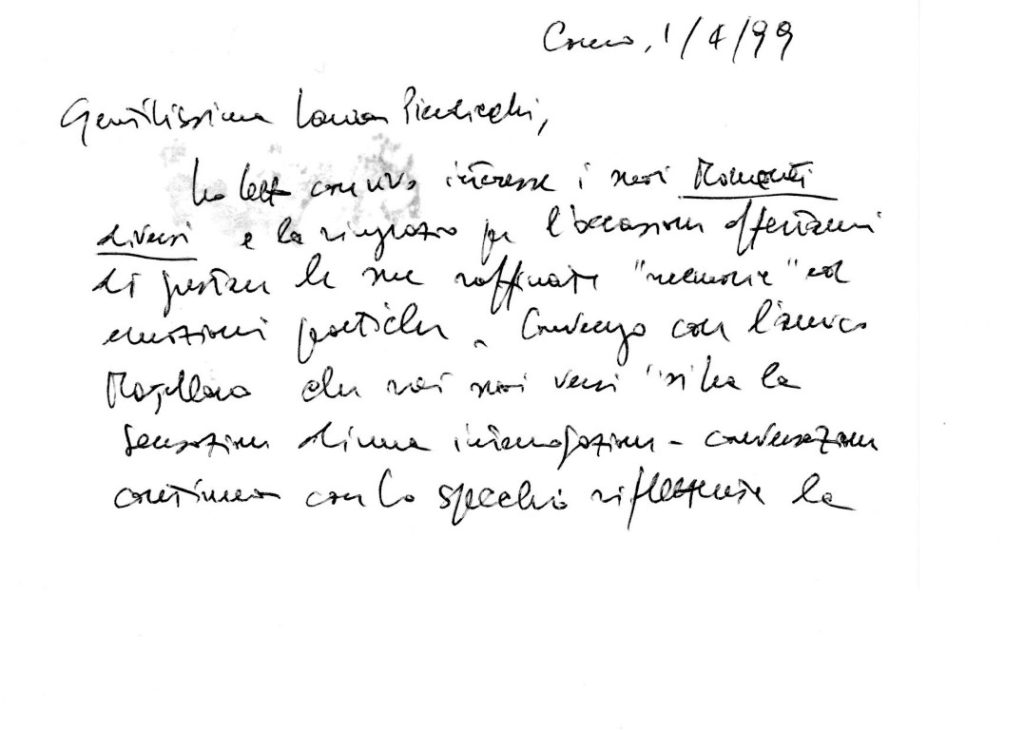 Como, 1/4/99
Gentilissima Laura Pierdicchi,
ho letto con vivo interesse i suoi Momenti
diversi e la ringrazio per l'occasione offertami
di gustare le sue raffinate "memorie" ed
emozioni poetiche. Convengo con l'amico
che nei suoi versi "si ha la
sensazione di una interrogazione - conversazione
continua con lo specchio riflettente la